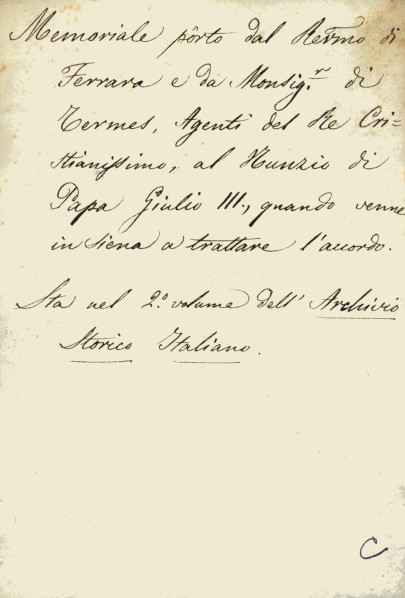 Memoriale pòrto dal Rev̅mo di
Ferrara e da Monsig.r di
Termes, Agenti del Re Cri-
stianissimo, al Nunzio di
Papa Giulio III., quando venne
in Siena a trattare l'accordo.
Sta nel 2.º volume dell' Archivio
Storico Italiano.
C